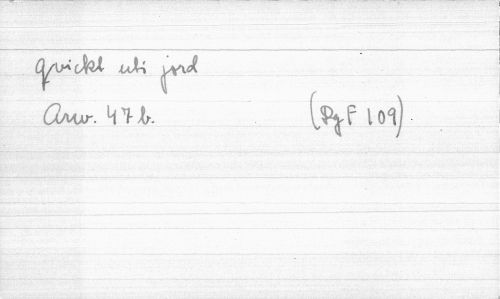 qvickt uti jord
Arw. 47 b. (Rg F 109).